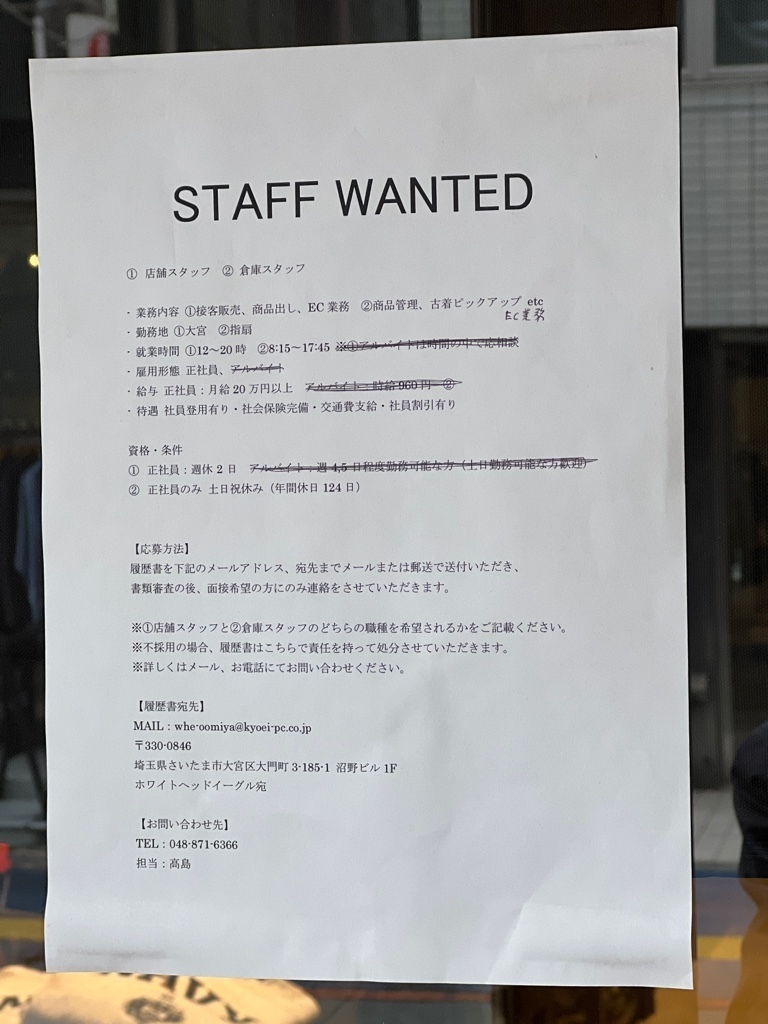 STAFF WANTED
① 店舗スタッフ ② 倉庫スタッフ
・業務内容 ①接客販売、商品出し、EC 業務 ②商品管理、古着ピックアップ etc
EC業務
・勤務地 ①大宮 ②指扇
・就業時間 ①12～20 時 ②8:15～17:45 ※①アルバイトは時間の中で応相談
・雇用形態 正社員、アルバイト
・給与 正社員：月給 20 万円以上 アルバイト：時給 960 円 ②
・待遇 社員登用有り・社会保険完備・交通費支給・社員割引有り
資格・条件
① 正社員：週休 2 日 アルバイト：週 4,5 日程度勤務可能な方（土日勤務可能な方歓迎）
② 正社員のみ 土日祝休み（年間休日 124 日）
【応募方法】
履歴書を下記のメールアドレス、宛先までメールまたは郵送で送付いただき、
書類審査の後、面接希望の方にのみ連絡をさせていただきます。
※①店舗スタッフと②倉庫スタッフのどちらの職種を希望されるかをご記載ください。
※不採用の場合、履歴書はこちらで責任を持って処分させていただきます。
※詳しくはメール、お電話にてお問い合わせください。
【履歴書宛先】
MAIL：whe-oomiya@kyoei-pc.co.jp
〒330-0846
埼玉県さいたま市大宮区大門町 3-185-1 沼野ビル 1F
ホワイトヘッドイーグル宛
【お問い合わせ先】
TEL：048-871-6366
担当：高島